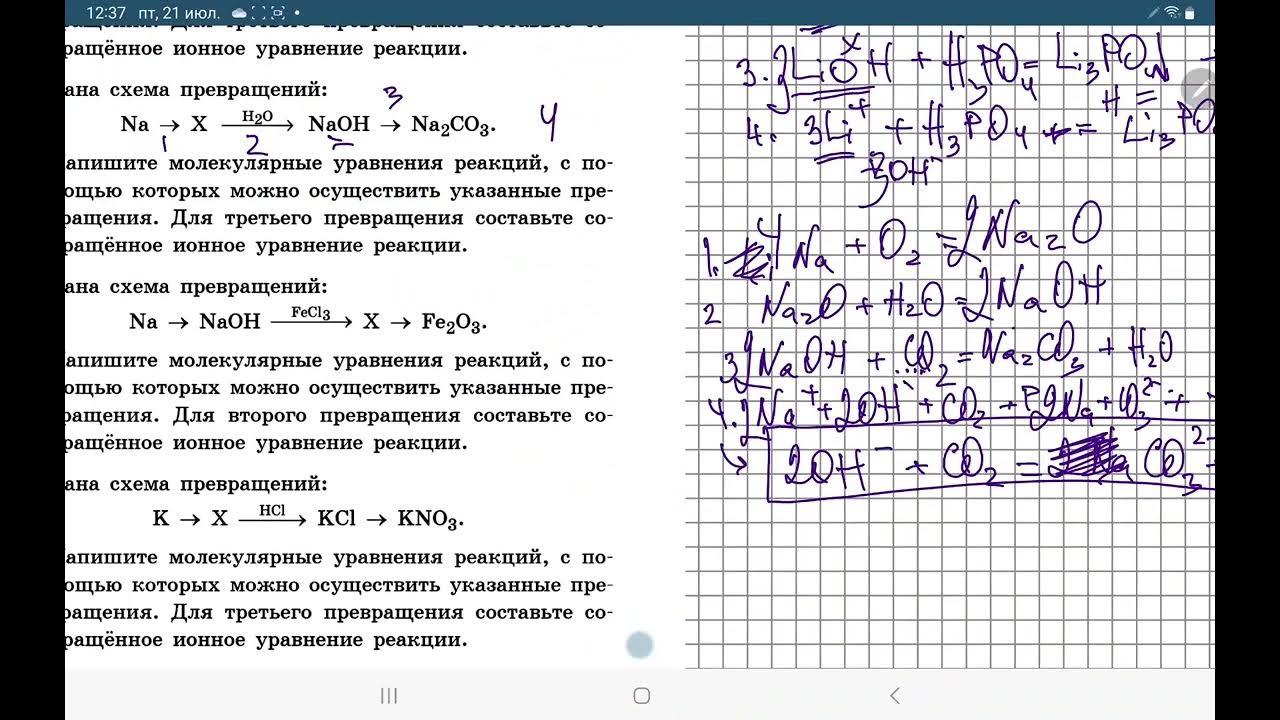 12:37 пт, 21 июл.
ращённое ионное уравнение реакции.
ана схема превращений:
3
Na → X H₂O → NaOH → Na₂CO₃. 4
1 2
апишите молекулярные уравнения реакций, с по-
ощью которых можно осуществить указанные пре-
ращения. Для третьего превращения составьте со-
ращённое ионное уравнение реакции.
ана схема превращений:
Na → NaOH FeCl₃ → X → Fe₂O₃.
апишите молекулярные уравнения реакций, с по-
ощью которых можно осуществить указанные пре-
ращения. Для второго превращения составьте со-
ращённое ионное уравнение реакции.
ана схема превращений:
K → X HCl → KCl → KNO₃.
апишите молекулярные уравнения реакций, с по-
ощью которых можно осуществить указанные пре-
ращения. Для третьего превращения составьте со-
ращённое ионное уравнение реакции.
3. 3LiOH + H₃PO₄ = Li₃PO₄
4. 3Li⁺ + H₃PO₄ = Li₃PO
3OH⁻
1. 4Na + O₂ = 2Na₂O
2 Na₂O + H₂O = 2NaOH
3 2NaOH + CO₂ = Na₂CO₃ + H₂O
4. 2Na⁺ + 2OH⁻ + CO₂ → 2Na + CO₃²⁻ +
2OH⁻ + CO₂ = CO₃²⁻